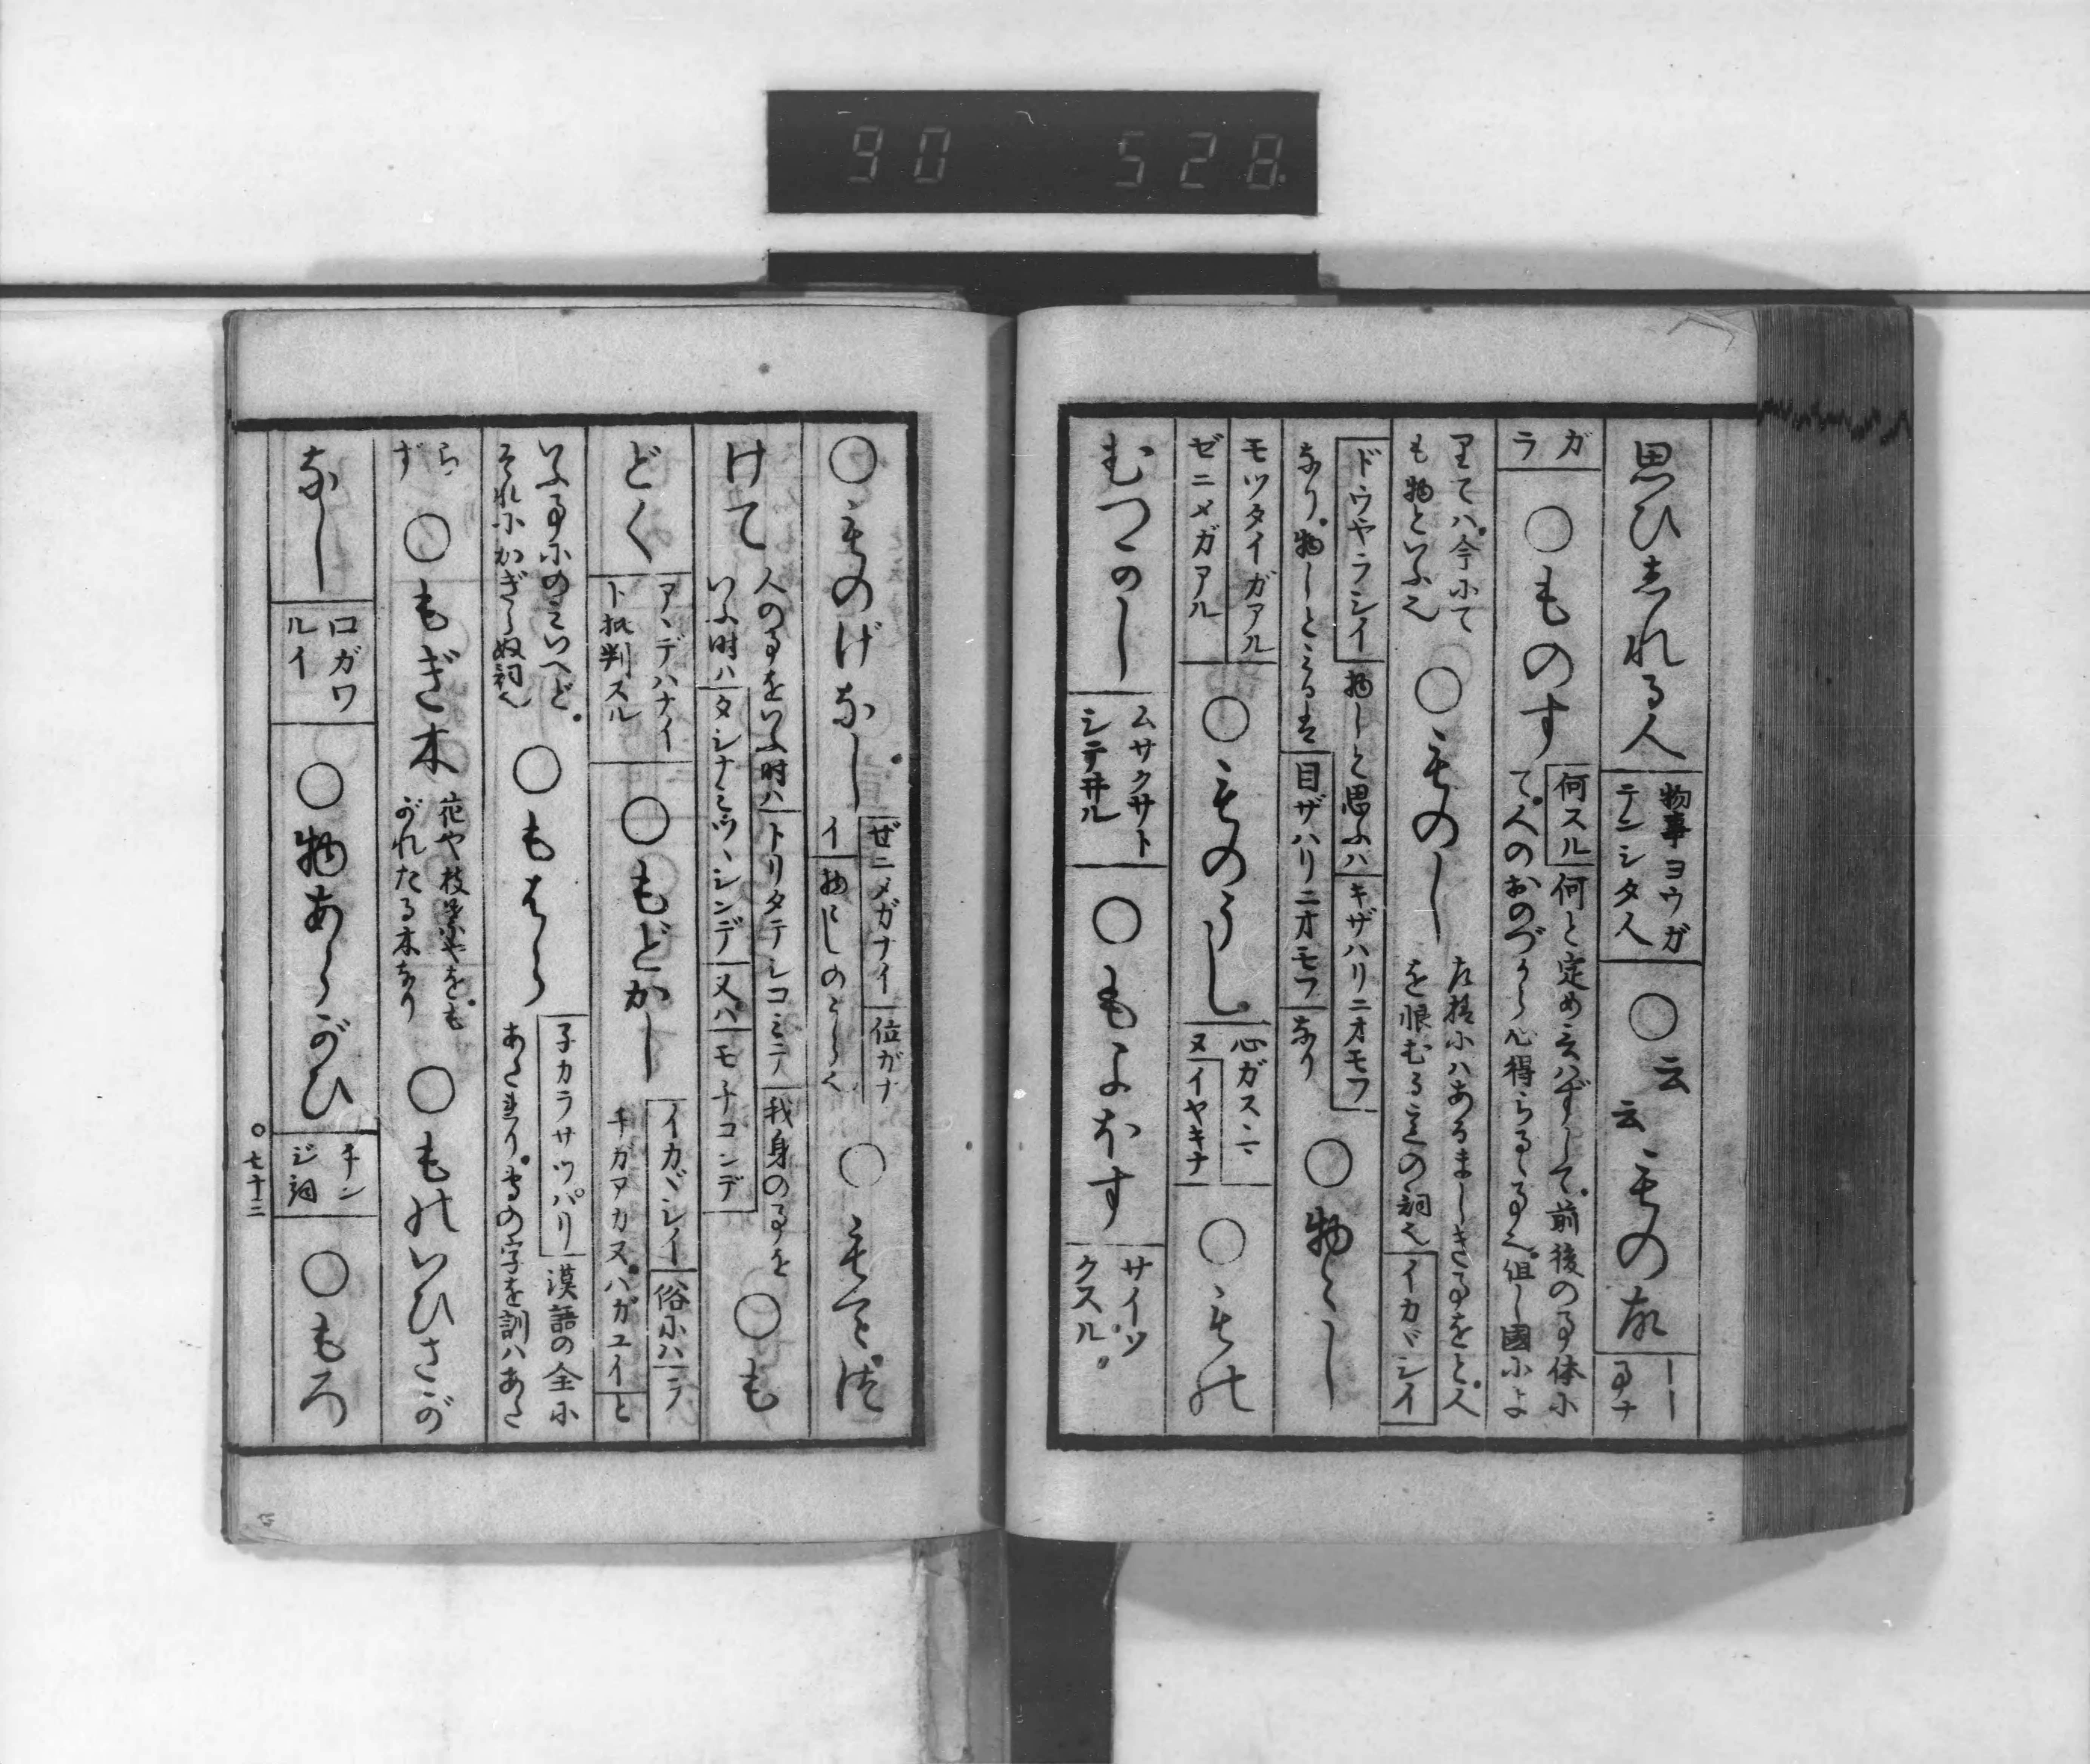 90 528
思ひしれる人
物事ヨウガ
テンシタ人
○云云ものから
ーー
事ナ
ガ
ラ
○ものす
何スル
何と定め云ハずして、前後の事体に
て、人のおのづから心得らるゝ事也、但し國によ
りてハ、今にて
も物といふ也
○ものし
左様にハあるましき事をと、人
を恨むる意の詞也
イカヾシイ
ドウヤラシイ
物しと思ふハ
キザハリニオモフ
なり、物しとみるは
目ザハリニオモフ
なり
○物々し
モツタイガアル
ゼニメガアル
○ものうし
心ガスヽマ
ヌ
イヤキナ
○もの
むつかし
ムサクサト
シテヰル
○もよほす
サイソ
クスル
○ものげなし
ゼニメガナイ
位ガナ
イ
○もて
けて
人の事をいふ時ハ
トリタテレコミテ
我身の事を
いふ時ハ
タシナミツヽシンデ
又ハ
モチコンデ
○も
どく
アヽデハナイ
ト批判スル
○もどかし
イカヾシイ
俗にハ
ラ
チガアカヌ
ハガユイ
と
いふ事にのミいへど、
それにかぎらぬ詞也
○もはら
子カラサツパリ
漢語の全に
あたれり、専の字を訓ハあた
らず
○もぎ木
花や枝葉やをも
がれたる木なり
○ものいひさが
なし
口ガワ
ルイ
○物あらがひ
チン
ジ詞
○もろ
七十二